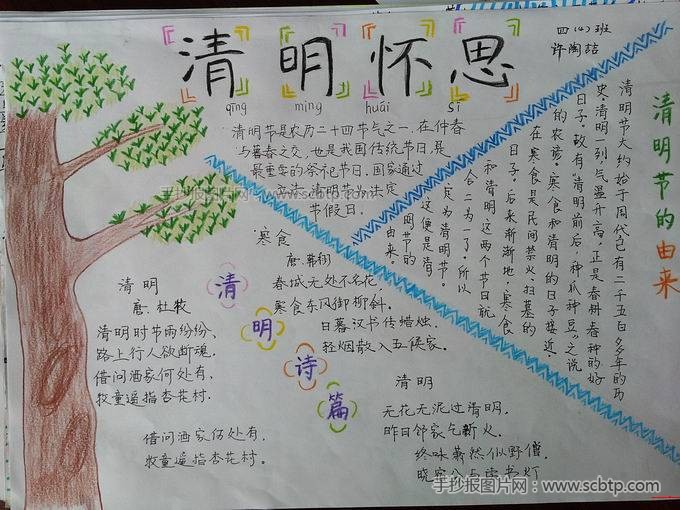 清明怀思
qīng míng huái sī
四(4)班
许陶喆
清明节是农历二十四节气之一,在仲春
与暮春之交,也是我国传统节日,是
最重要的祭祀节日,国家通过
清明节为法定
节假日。
清明节的由来
清明节大约始于周代已有二千五百多年的历
史,清明一到,气温升高,正是春耕春种的好
日子,故有“清明前后,种瓜种豆”之说
的农谚。寒食和清明的日子接近,
在寒食是民间禁火、扫墓的
日子,后来渐渐地,寒食
和清明这两个节日就
合二为一了,所以
定为清明节。
这便是清
明节的
由来
清明诗篇
清明
唐.杜牧
清明时节雨纷纷,
路上行人欲断魂,
借问酒家何处有,
牧童遥指杏花村.
借问酒家何处有,
牧童遥指杏花村.
寒食
唐.韩翃
春城无处不名花,
寒食东风御柳斜.
日暮汉书传蜡烛,
轻烟散入五侯家.
清明
无花无泥过清明.
昨日邻家气新火.
终味萧然似野僧.
晓窗分与读书灯
手抄报图片网:www.scbtp.com
手抄报图片网:www.scbtp.com